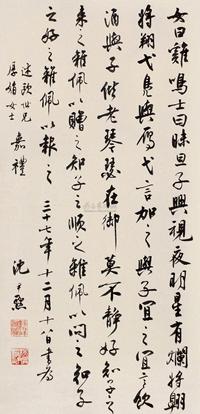 女曰雞鳴士曰昧旦子興視夜明星有爛將翱
將翔弋鳧與雁弋言加之與子宜之宜言飲
酒與子偕老琴瑟在御莫不靜好知子之
來之雜佩以贈之知子之順之雜佩以問之知子
之好之雜佩以報之三十七年十二月十八日書為
世兄
女士
嘉禮
沈尹默